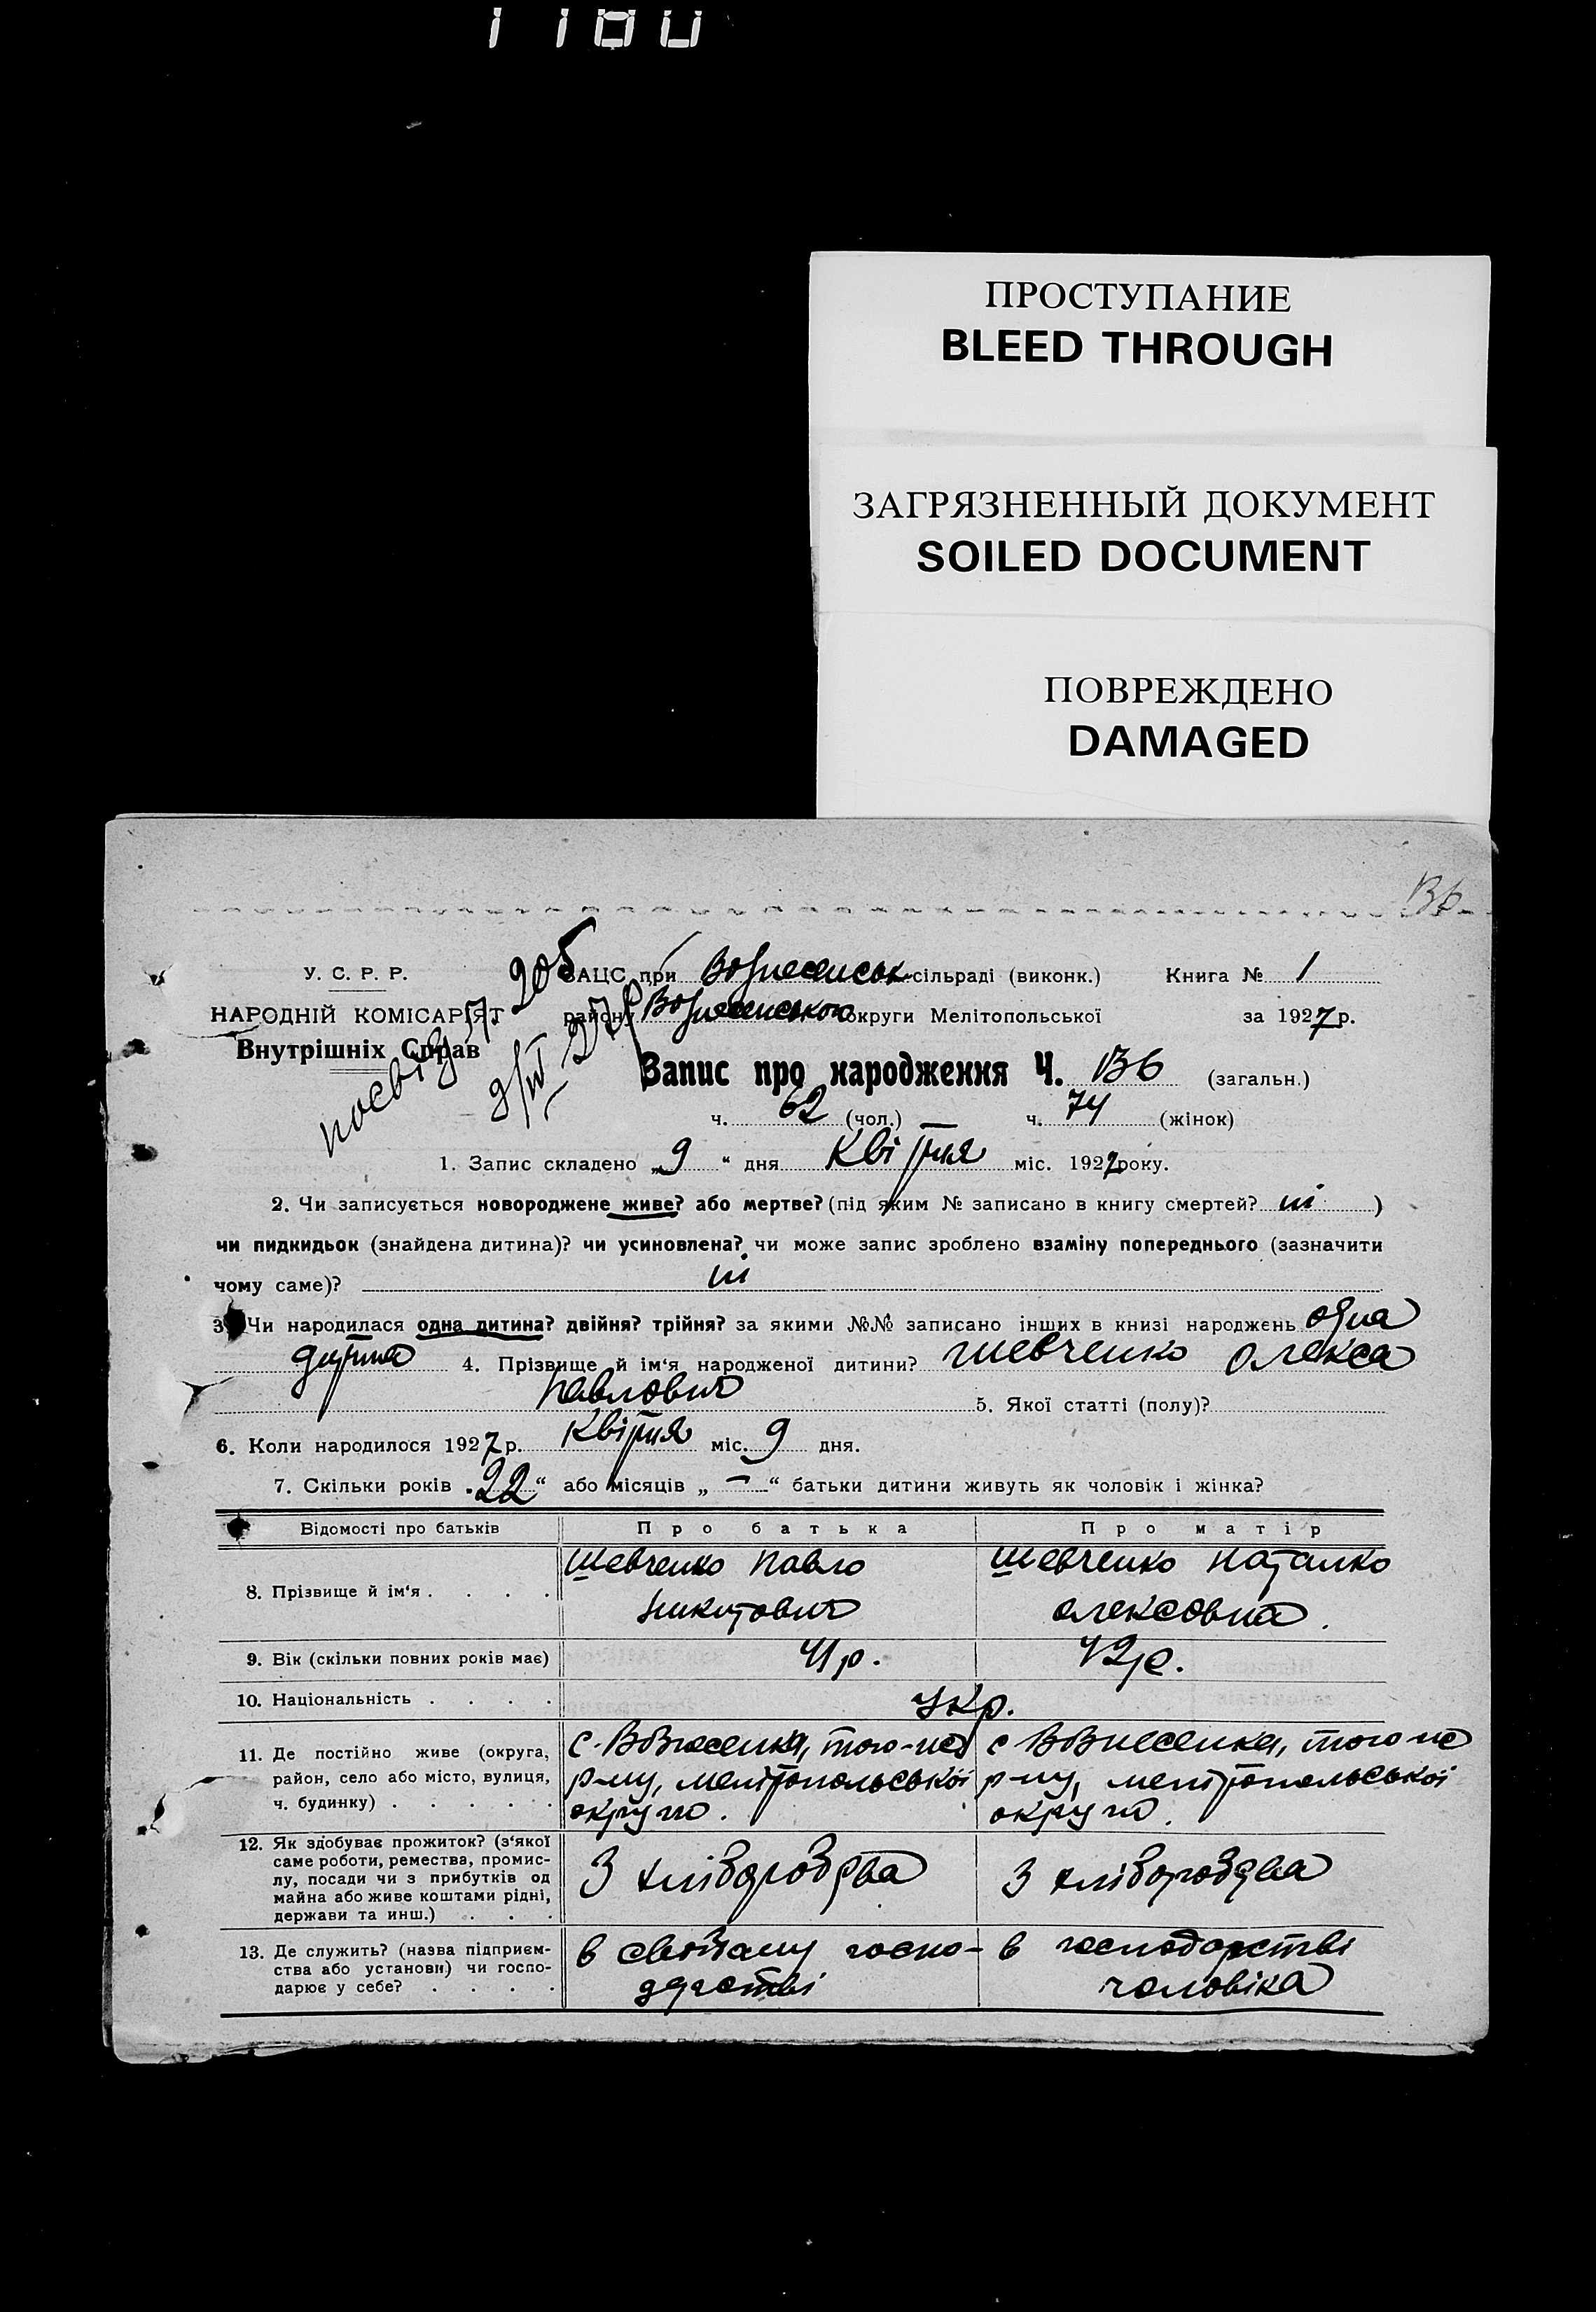 1 1 8 0
ПРОСТУПАНИЕ
BLEED THROUGH
ЗАГРЯЗНЕННЫЙ ДОКУМЕНТ
SOILED DOCUMENT
ПОВРЕЖДЕНО
DAMAGED
136
У. С. Р. Р.
НАРОДНІЙ КОМІСАРІЯТ
Внутрішніх Справ
ЗАЦС при Вознесенськ сільраді (виконк.) Книга № 1
району Вознесенського округи Мелітопольської за 1927 р.
Запис про народження Ч. 136 (загальн.)
ч. 62 (чол.) ч. 74 (жінок)
1. Запис складено „9“ дня Квітня міс. 1927 року.
2. Чи записується новороджене живе? або мертве? (під яким № записано в книгу смертей? ні )
чи пидкидьок (знайдена дитина)? чи усиновлена? чи може запис зроблено взаміну попереднього (зазначити
чому саме)? ні
3. Чи народилася одна дитина? двійня? трійня? за якими №№ записано інших в книзі народжень одна
дитина 4. Прізвище й ім‘я народженої дитини? Шевченко Олекса
Павлович 5. Якої статті (полу)?
6. Коли народилося 1927 р. Квітня міс. 9 дня.
7. Скільки років „22“ або місяців „ — “ батьки дитини живуть як чоловік і жінка?
Відомості про батьків Про батька Про матір
8. Прізвище й ім‘я . . . . Шевченко Павло Шевченко Наталко
Микитович Олексовна.
9. Вік (скільки повних років має) 41 р. 42 р.
10. Національність . . . . Укр.
11. Де постійно живе (округа, с. Вознесенка, того-ж с Вознесенка, того ж
район, село або місто, вулиця, р-ну, мелітопольської р-ну, мелітопольської
ч. будинку) . . . . . округи. округи.
12. Як здобуває прожиток? (з‘якої
саме роботи, ремества, промис-
лу, посади чи з прибутків од З хліборобства З хліборобства
майна або живе коштами рідні,
держави та инш.) . . .
13. Де служить? (назва підприєм- в свойому госпо- в господарстві
ства або установи) чи госпо- дарстві чоловіка
дарює у себе? . . . .